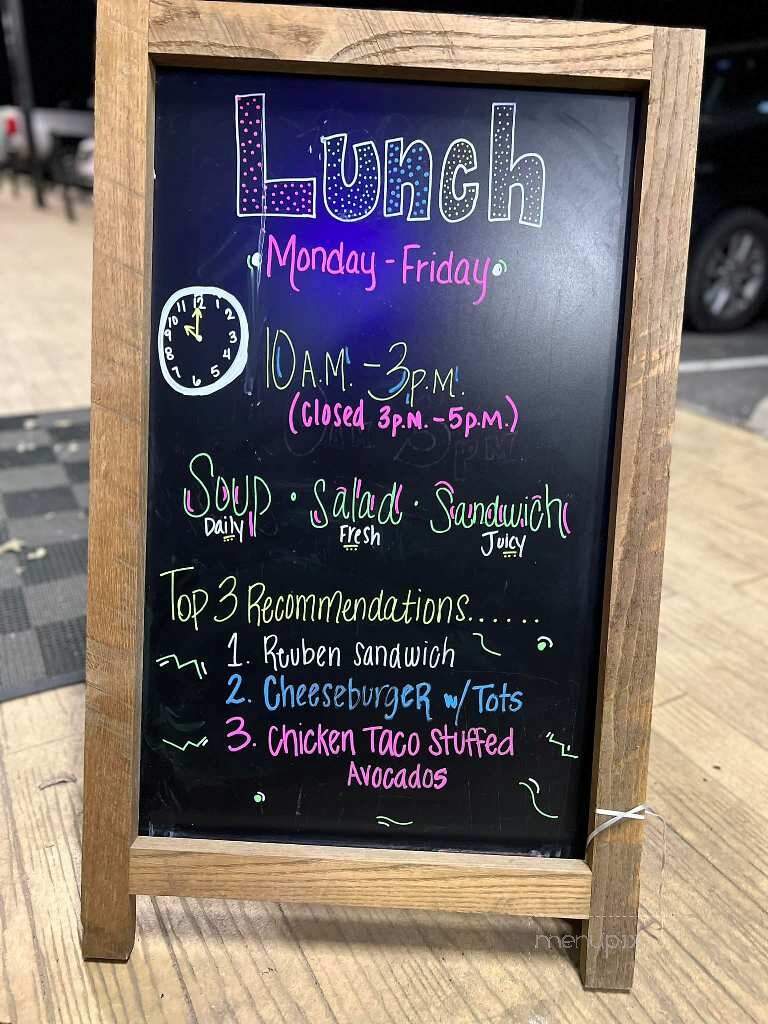 Lunch
Monday - Friday
11 12 1 2 3 4 5 6 7 8 9 10
10 A.M. - 3 P.M.
(Closed 3p.m. - 5p.m.)
Soup · Salad · Sandwich
Daily Fresh Juicy
Top 3 Recommendations......
1. Reuben Sandwich
2. Cheeseburger w/ Tots
3. Chicken Taco Stuffed
Avocados
menupix